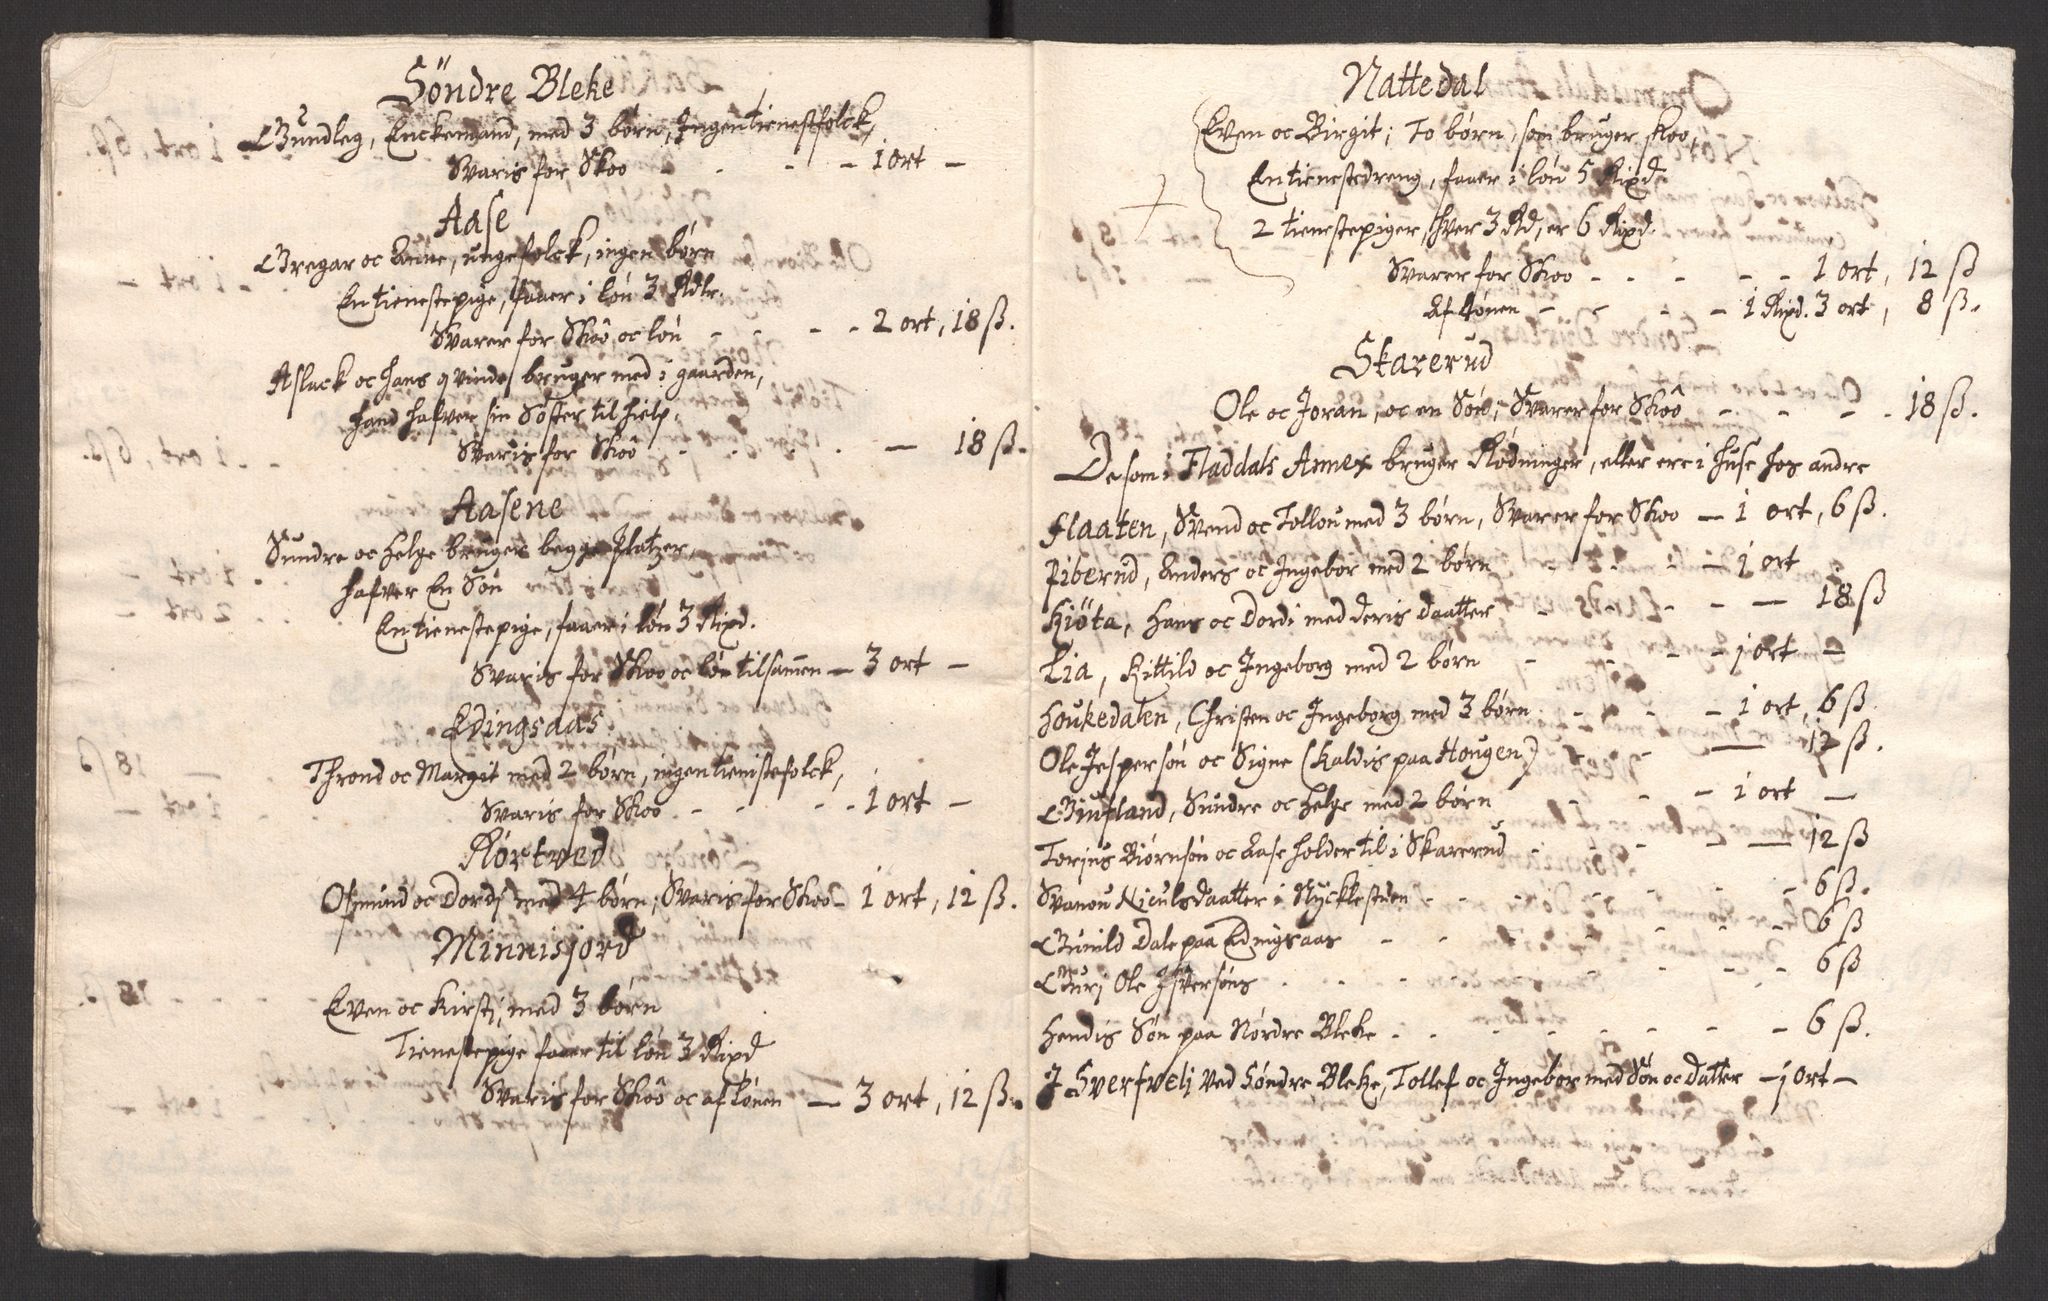 Söndre Bleke
Gundleg, Enckemand, med 3 børn, Ingen tienestfolck,
Svaris for Skoo - - - 1 ort -
Aase
Gregar oc Anne, unge folck, ingen børn
En tienestepige, faaer i løn 3 Rdlr.
Svarer for Skoo oc løn - - - 2 ort, 18 ß.
Aslack oc hans qvinde bruger med i gaarden,
hand hafver sin Söster til hielp.
Svaris for Skoo - - - - 18 ß.
Aasene
Sundre oc Helge bruger begge Platzer,
hafver En Sön
En tienestepige, faaer i løn 3 Rixd.
Svaris for Skoo oc løn tilsammen - 3 ort -
Edingsaas
Thrond oc Margit med 2 børn, ingen tienistefolck,
Svaris for Skoo - - - - 1 ort -
Rørtved
Osmund oc Dordj med 4 børn; Svaris for Skoo - 1 ort, 12 ß.
Minnisjord
Even oc Kirstj, med 3 børn
Tienestepige faaer til løn 3 Rixd
Svaris for Skoo oc af Lønen - 3 ort, 12 ß.
Nattedal
Even oc Birgit; To børn, som bruger skoo,
En tienestedreng, faaer i løn 5 Rixd.
2 tienestepiger, hver 3 Rd, er 6 Rixd.
Svarer for Skoo - - - - - 1 ort, 12 ß
Af Lønen - - - - 1 Rixd. 3 ort, 8 ß.
Skarerud
Ole oc Joran, oc en Sön; Svarer for Skoo - - - - 18 ß.
De som i Fladdals Annex bruger Rødninger, eller ere i huse hos andre
Flaaten, Svend oc Tollou med 3 børn, Svarer for Skoo - 1 ort, 6 ß.
Piberud, Anders oc Ingebor med 2 børn - - - - 1 ort
Kiöta, Hans oc Dordi med deris daatter - - - - 18 ß
Lia, Kittild oc Ingeborg med 2 børn - - - - 1 ort -
Houkedalen, Christen oc Ingeborg med 3 børn - - - 1 ort, 6 ß
Ole Jespersön oc Signe (kaldis paa Hougen) - - 12 ß.
Giufland, Sundre oc Helge med 2 børn - - - 1 ort -
Torjus Biörnsön oc Aase holder til i Skarerud - - - - 12 ß
Svanou Niculsdaatter i Nyckkestuen - - - - - - 6 ß.
Gunild Dale paa Edingsaas - - - - - - - 6 ß
Gurj Ole Ifversöns - - - - - - - 6 ß
Hendis Sön paa Nördre Bleke - - - - - - - 6 ß.
I Sverfvelj ved Söndre Bleke, Tollef oc Ingebor med Sön oc datter - 1 ort -